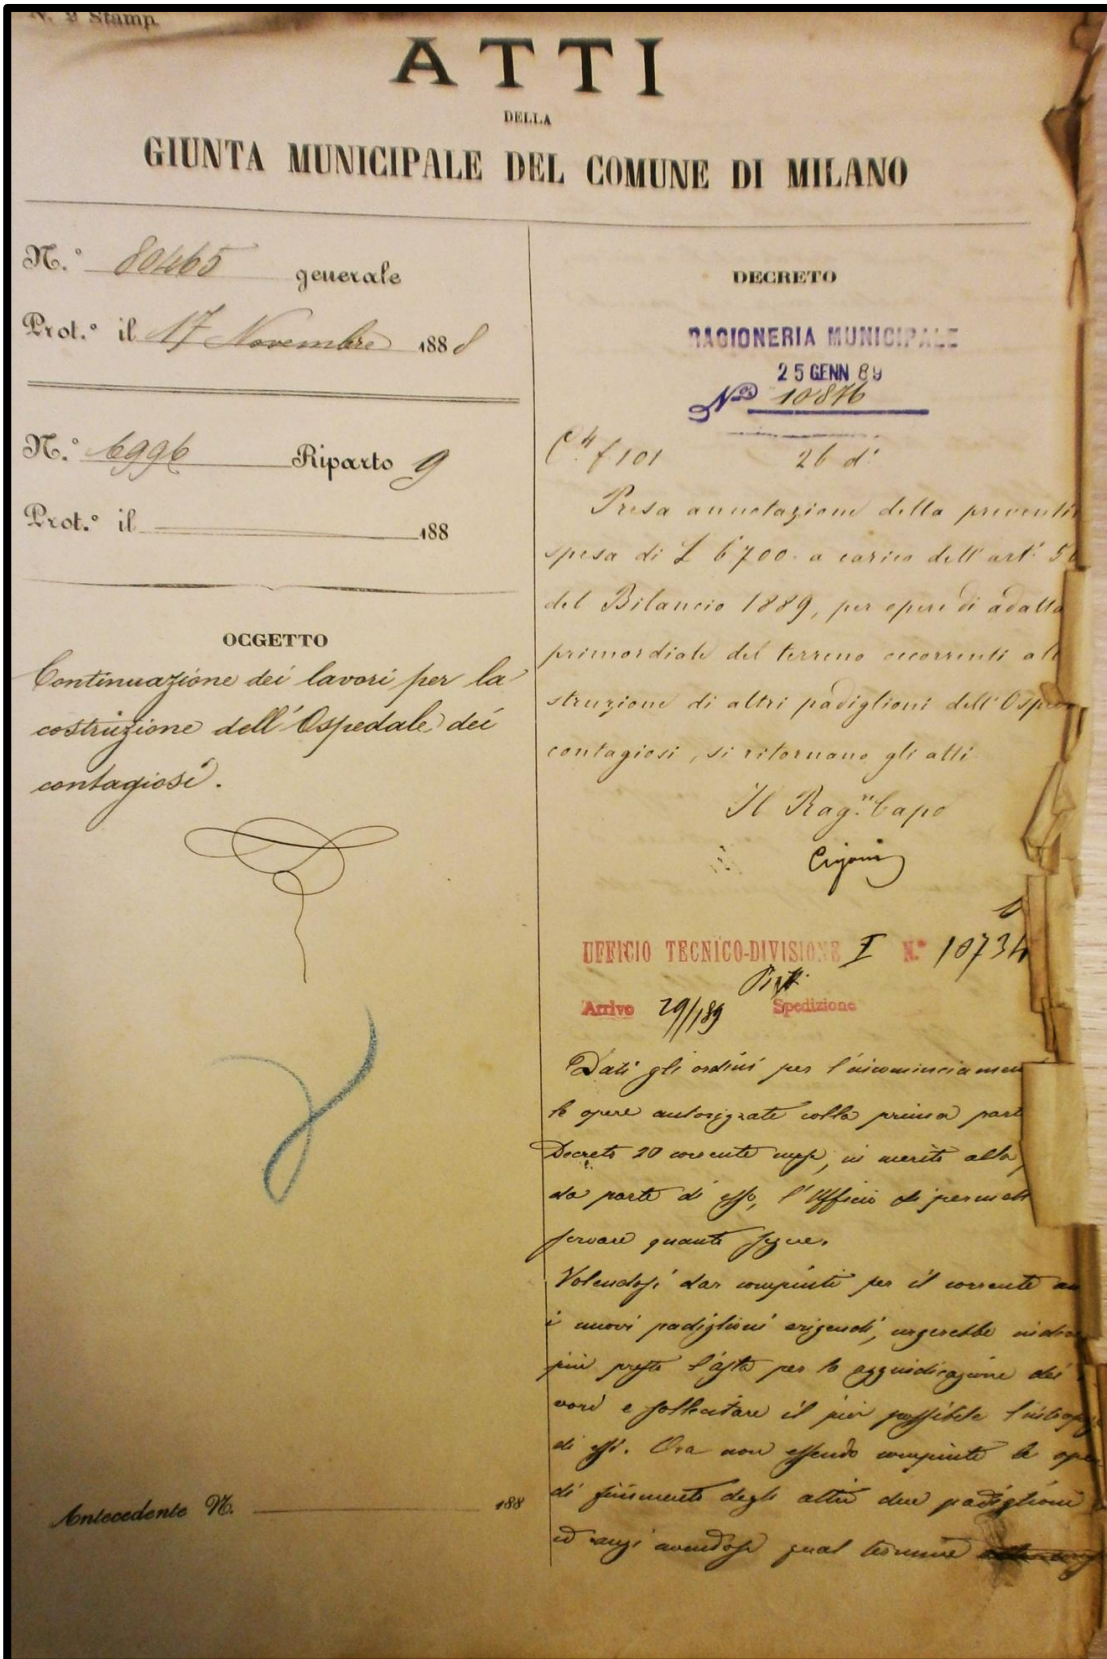 N. 9 Stamp.
ATTI
DELLA
GIUNTA MUNICIPALE DEL COMUNE DI MILANO
N.° 80465 generale
Prot.° il 17 Novembre 1888
N.° 6996 Riparto 9
Prot.° il 188
OGGETTO
Continuazione dei lavori per la
costruzione dell'Ospedale dei
contagiosi.
Antecedente N. 188
DECRETO
RAGIONERIA MUNICIPALE
25 GENN 89
N° 10876
f 101 26 d°
Presa annotazione della preventi
spesa di L 6700 a carico dell'art° 5
del Bilancio 1889, per opere di adatta
primordiale del terreno occorrenti all
struzione di altri padiglioni dell'Ospe
contagiosi, si ritornano gli atti
Il Rag.re Capo
UFFICIO TECNICO-DIVISIONE I N.° 10734
Arrivo 29/1 89 Spedizione
Dati gli ordini per l'incominciamen
le opere autorizzate colla prima part
Decreto 20 corrente mese, in merito alla
da parte di esso, l'Ufficio si permett
servare quanto segue.
Volendosi dar compiuti per il corrente an
i nuovi padiglioni erigendi, urgerebbe
più presto l'asta per la aggiudicazione dei
vori e sollecitare il più possibile
di essi. Ora non essendo compiute le ope
di finimento degli altri due padiglioni
ed anzi avendosi qual termine